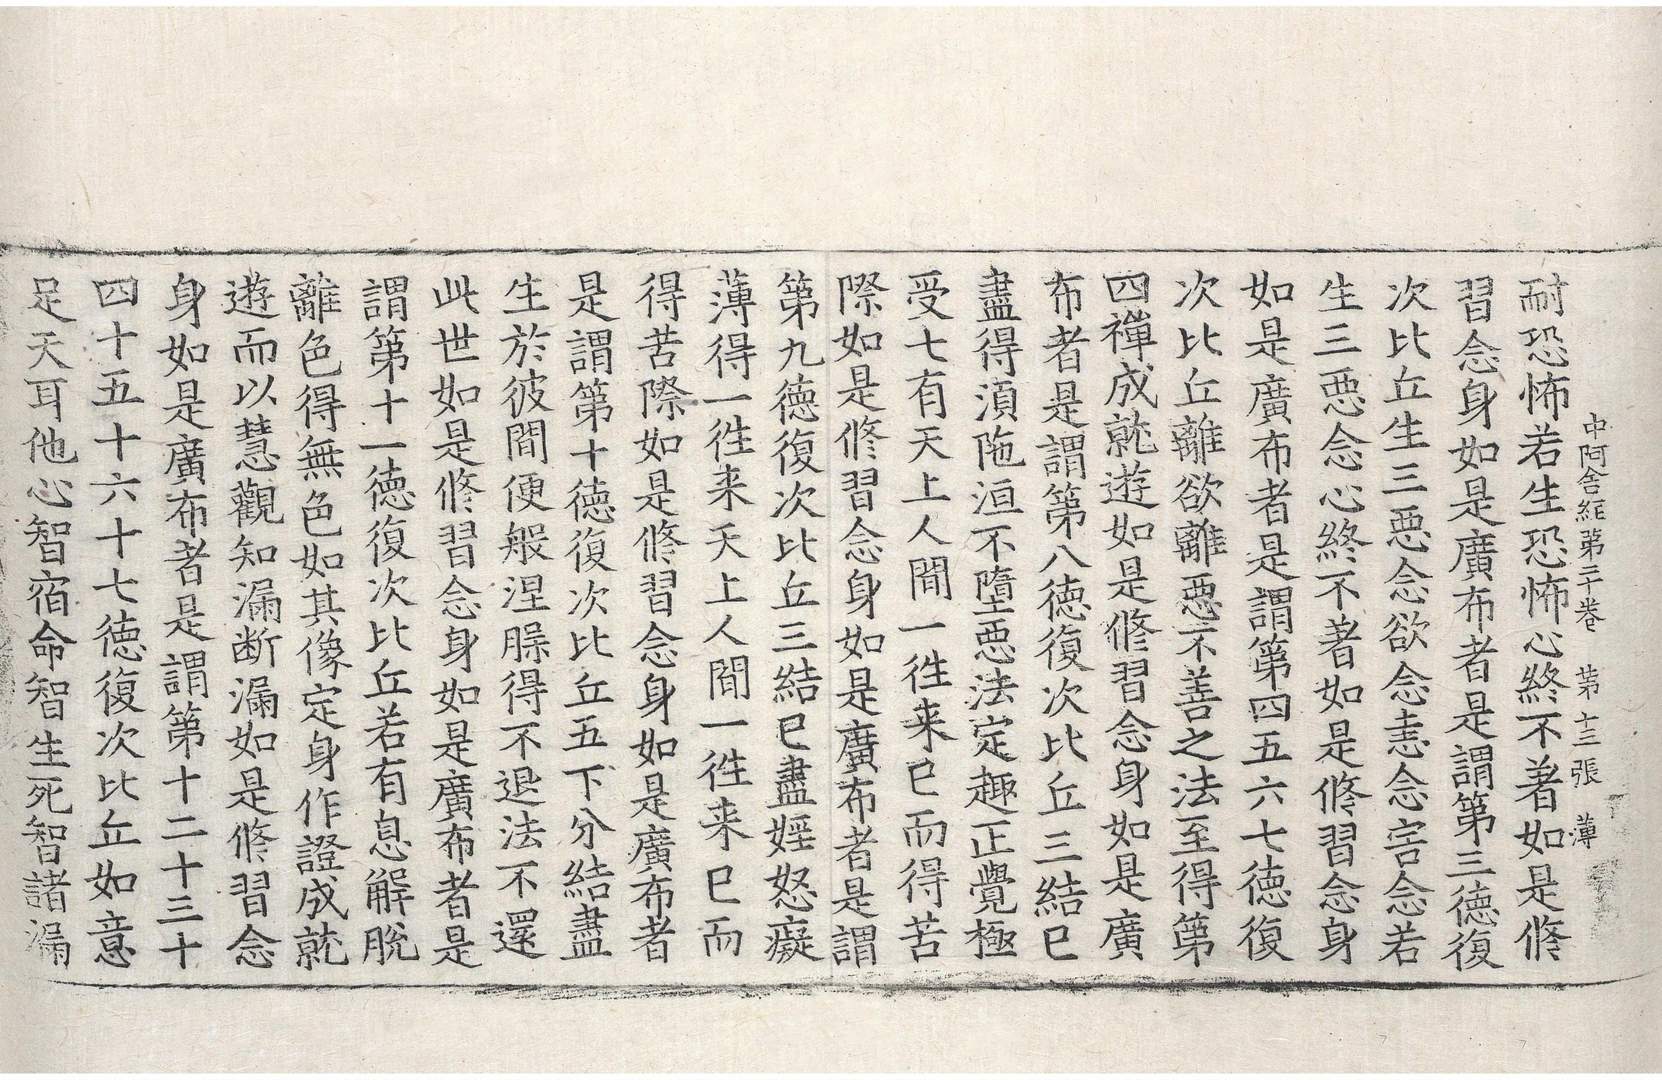 中阿含經第二十卷 第十三張 薄
耐恐怖若生恐怖心終不著如是修
習念身如是廣布者是謂第三德復
次比丘生三惡念欲念恚念害念若
生三惡念心終不著如是修習念身
如是廣布者是謂第四五六七德復
次比丘離欲離惡不善之法至得第
四禪成就遊如是修習念身如是廣
布者是謂第八德復次比丘三結已
盡得湏陁洹不墮惡法定趣正覺極
受七有天上人間一往来已而得苦
際如是修習念身如是廣布者是謂
第九德復次比丘三結已盡婬怒癡
薄得一往来天上人間一往来已而
得苦際如是修習念身如是廣布者
是謂第十德復次比丘五下分結盡
生於彼間便般涅槃得不退法不還
此世如是修習念身如是廣布者是
謂第十一德復次比丘若有息解脫
離色得無色如其像定身作證成就
遊而以慧觀知漏断漏如是修習念
身如是廣布者是謂第十二十三十
四十五十六十七德復次比丘如意
足天耳他心智宿命智生死智諸漏